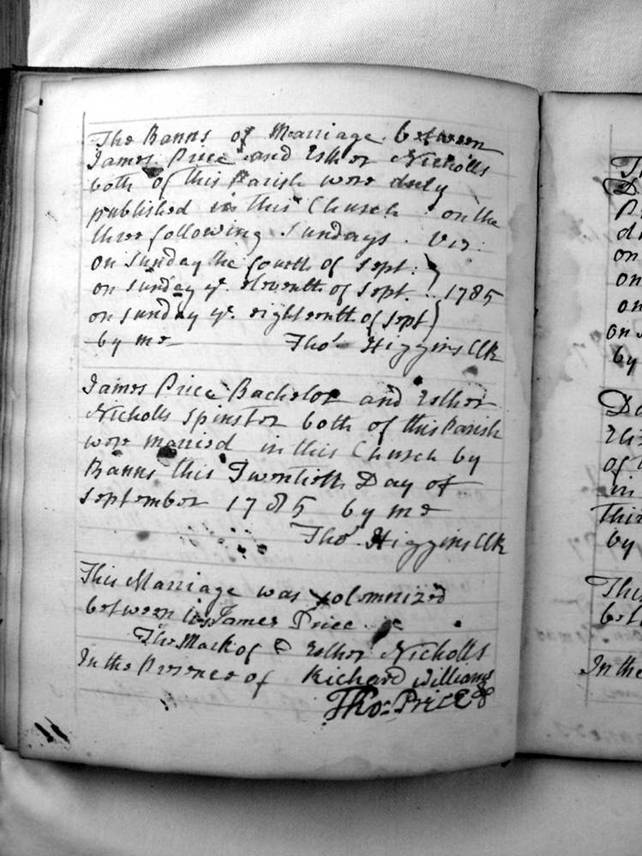 The Banns of Marriage between
James Price and Esther Nicholls
both of this Parish were duly
published in this Church on the
three following Sundays. Viz:
on Sunday the fourth of Sept:
on Sunday ye. eleventh of Sept. 1785
on Sunday ye. eighteenth of Sept
by me Thos. Higgins Clk
James Price Bachelor and Esther
Nicholls Spinster both of this Parish
were married in this Church by
Banns this Twentieth Day of
September 1785 by me
Thos. Higgins Clk
This Marriage was solemnized
between us James Price
The Mark of E Esther Nicholls
In the Presence of Richard Williams
Thos: Price
on
on
on
on
by
of
in
this
by
This
In the